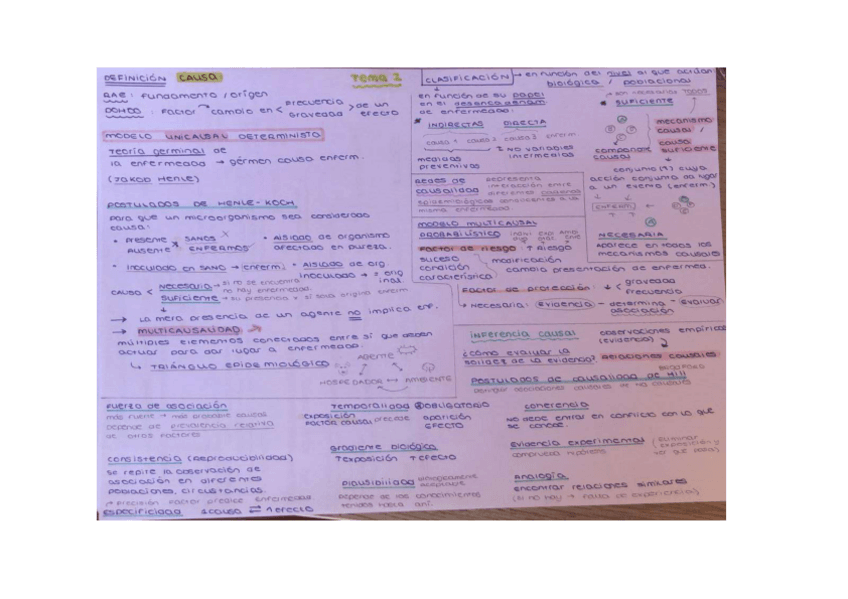 DEFINICIÓN CAUSA Tema 2
RAE: fundamento/origen
factor cambio en frecuencia gravedad de un efecto
MODELO UNICAUSAL DETERMINISTO
Teoría germinal de
la enfermedad → gérmen causa enferm.
POSTULADOS DE HENLE-KOCH
Para que un microorganismo sea considerado
causa:
• Presente Ausente SANOS ENFERMOS
• Aislado de organismo
afectado en pureza.
• Inoculado en sano → enferm.
• Aislado de org.
inoculado →
CAUSA Necesaria → si no se encuentra
no hay enfermedad
Suficiente → su presencia
→ La mera presencia de un agente no implica enf.
→ MULTICAUSALIDAD
múltiples elementos conectados entre sí que deben
actuar para dar lugar a enfermedad.
↳ TRIÁNGULO EPIDEMIOLÓGICO
AGENTE
HOSPEDADOR ↔ AMBIENTE
CLASIFICACIÓN → en función del nivel al que actúan
biológica / poblacional
en función de su papel
en el
de enfermedad:
INDIRECTAS DIRECTA
causa 1 causa 2 causa 3 enferm.
NO variables
intermedias
medidas
preventivas
SUFICIENTE
mecanismo
causal /
causa
suficiente
componente
causal
conjunto
acción conjunta da lugar
a un evento (enferm.)
ENFERM.
NECESARIA
Aparece en todos los
mecanismos causales
Redes de
causalidad
representa
interacción entre
diferentes
misma enfermedad.
MODELO MULTICAUSAL
PROBABILÍSTICO
Factor de riesgo: ↑ Riesgo
suceso
condición
característica
modificación
cambia presentación de enfermed.
Factor de protección: ↓ gravedad
frecuencia
→ Necesaria: evidencia - determina - evaluar
asociación
INFERENCIA CAUSAL
observaciones empíricas
(evidencia)
¿cómo evaluar la
solidez de la evidencia? RELACIONES CAUSALES
POSTULADOS DE CAUSALIDAD DE HILL
Fuerza de asociación
más fuerte → más probable causal
depende de prevalencia relativa
de otros factores
consistencia (Reproducibilidad)
se repite la observación de
asociación en diferentes
poblaciones, circustancias.
especificidad 1 causa ⇌ 1 efecto
Temporalidad OBLIGATORIO
exposición
factor causal precede aparición
EFECTO
Gradiente biológico
↑ exposición ↑ efecto
Plausibilidad biológicamente
aceptable
Depende de los conocimientos
tenidos hasta ahí.
coherencia
No debe entrar en conflicto con lo que
se conoce.
Evidencia experimental (Eliminar
exposición y
ver qué pasa)
comprueba hipótesis
Analogía
encontrar relaciones similares
(si no hay → falta de experiencia)